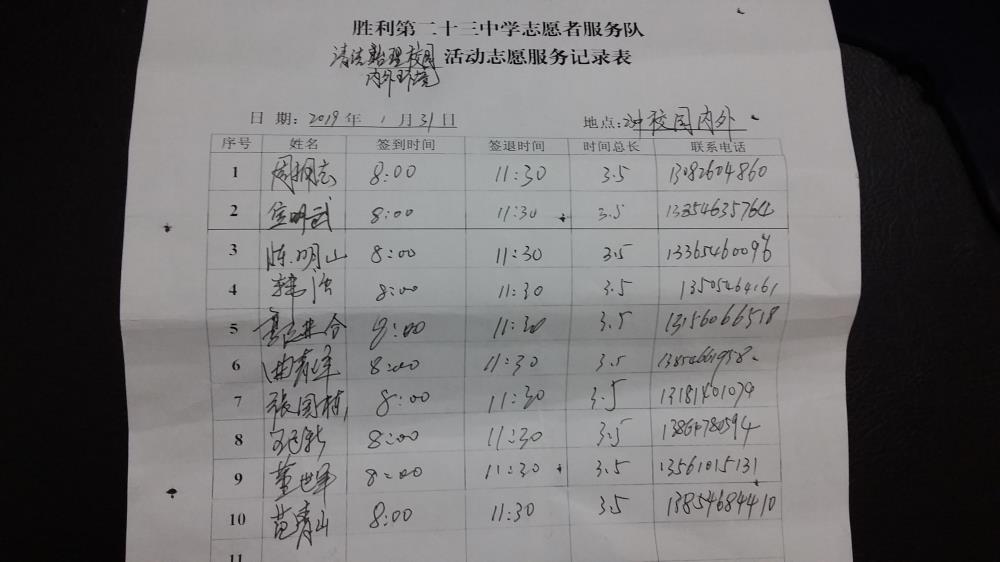 胜利第二十三中学志愿者服务队
清洁整理校园内外环境 活动志愿服务记录表
日 期: 2019 年 1 月 31 日 地点: 校园内外
序号 姓名 签到时间 签退时间 时间总长 联系电话
1 8:00 11:30 3.5 13082604860
2 8:00 11:30 3.5
3 陈明山 8:00 11:30 3.5 13365460096
4 韩浩 8:00 11:30 3.5 13505464161
5 8:00 11:30 3.5 13156066518
6 曲青军 8:00 11:30 3.5
7 张国栋 8:00 11:30 3.5
8 8:00 11:30 3.5
9 董世军 8:00 11:30 3.5 13561015131
10 范青山 8:00 11:30 3.5 13854684410
11